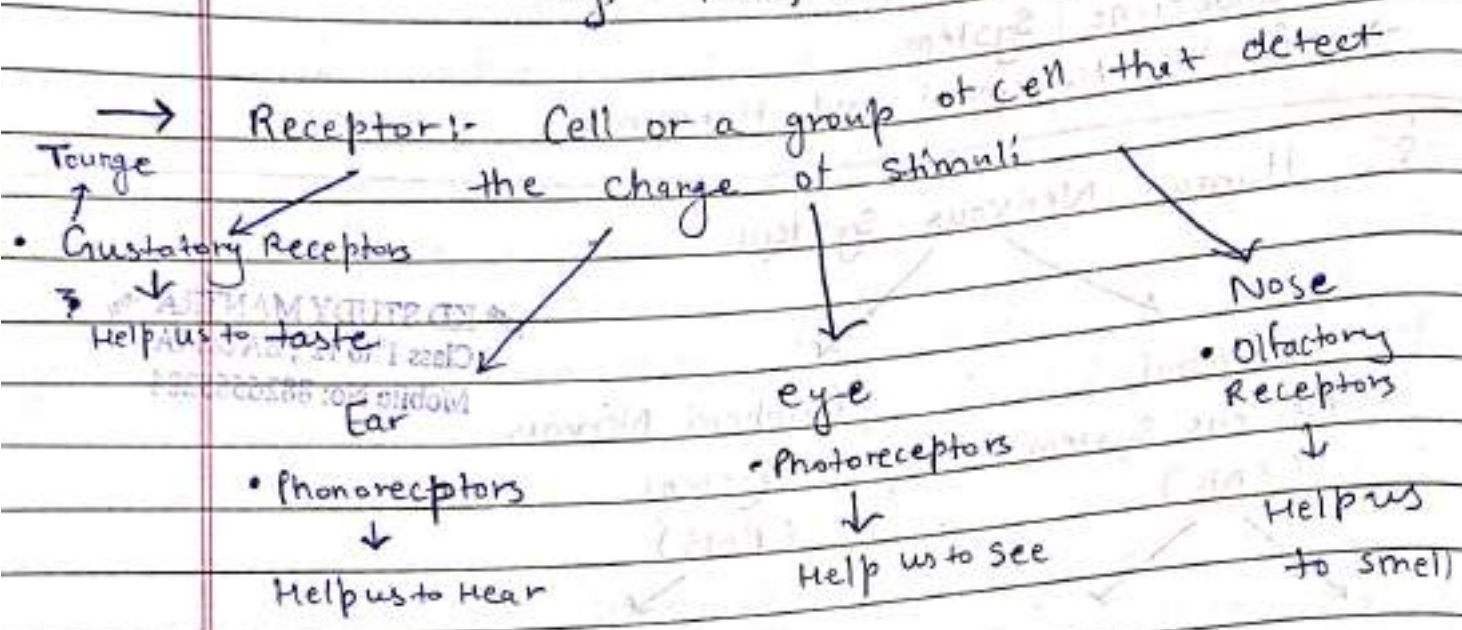 → Receptor:- Cell or a group of cell that detect
the change of stimuli
Tounge
• Gustatory Receptors
Help us to taste
Ear
• Phonorecptors
Help us to Hear
eye
• Photoreceptors
Help us to see
Nose
• Olfactory
Receptors
Help us
to smell